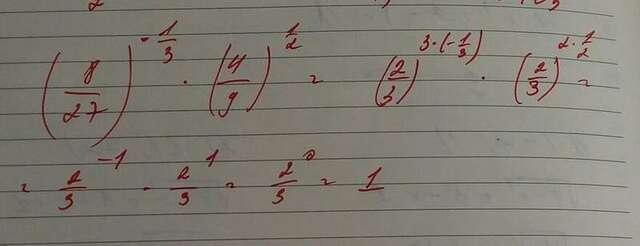 (8/27)^(-1/3) · (4/9)^(1/2) = (2/3)^(3·(-1/3)) · (2/3)^(2·1/2) =
= 2/3^(-1) · 2/3^1 = 2/3^0 = 1